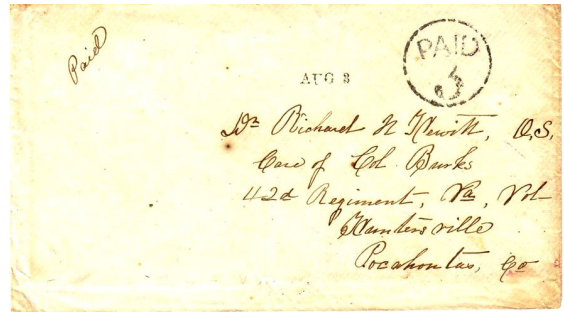 Paid
PAID
5
AUG 3
Dr Richard N Hewitt, Q,S,
Care of Col. Burks
42d Regiment, Va, Vol
Huntersville
Pocahontas, Co